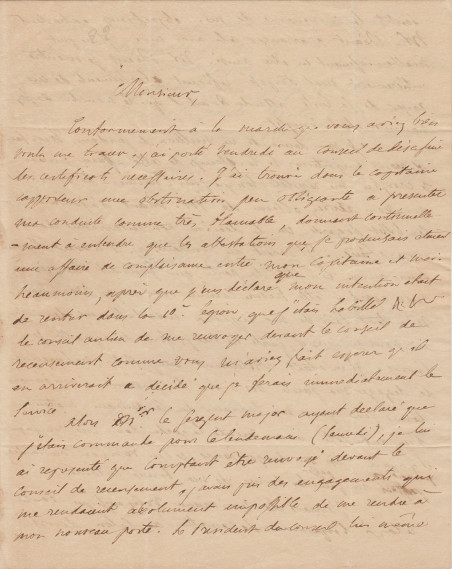 Monsieur,
Conformément à la marche que vous aviez bien
voulu me tracer, j'ai porté vendredi au conseil de discipline
les certificats nécessaires. J'ai trouvé dans le capitaine
rapporteur une obstination peu obligeante à présenter
ma conduite comme très blamable, donnant continuelle
-ment à entendre que les attestations que je produisais étaient
une affaire de complaisance entre mon Capitaine et moi
néanmoins, après que j'eus déclaré que mon intention était
de rentrer dans la 10e légion, que j'étais habillé
le conseil au lieu de me renvoyer devant le conseil de
recensement comme vous m'aviez fait espérer qu'il
en arriverait a décidé que je ferais immédiatement le
service.
Alors le sergent major ayant déclaré que
j'étais commandé pour le lendemain (samedi), je lui
ai représenté que comptant être renvoyé devant le
conseil de recensement, j'avais pris des engagements qui
me rendaient absolument impossible de me rendre à
mon nouveau poste. Le Président du conseil lui même